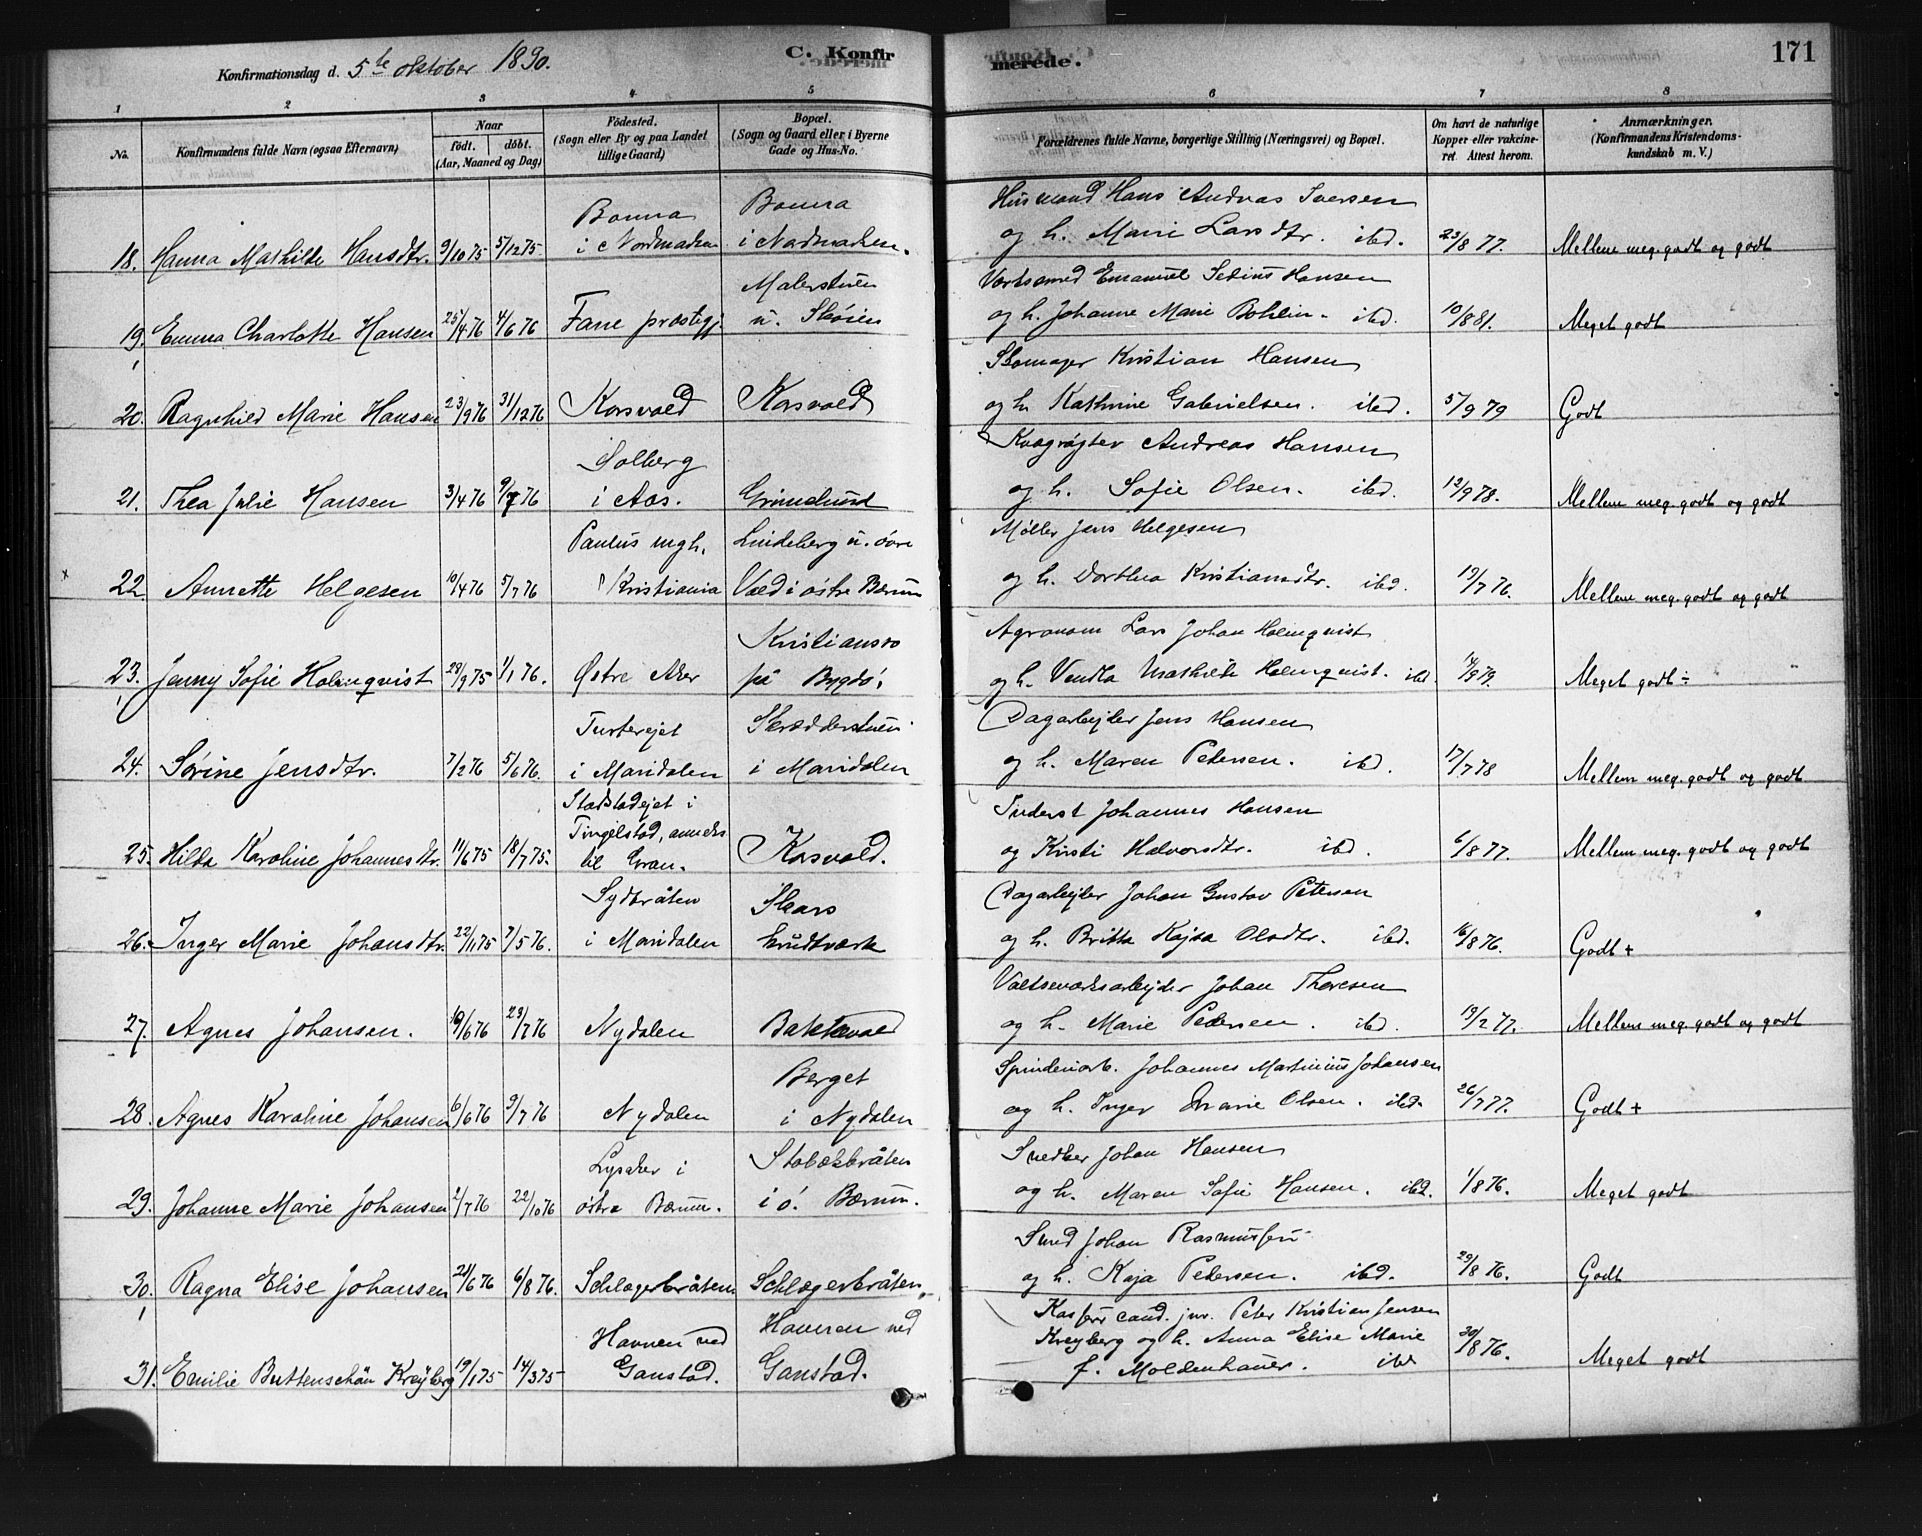 Konfirmationsdag d. 5te oktober 1890.
C. Konfirmerede.
171
1 2 3 4 5 6 7 8
No.
Konfirmandens fulde Navn (ogsaa Efternavn)
Naar
født. døbt.
(Aar, Maaned og Dag)
Fødested.
(Sogn eller By og paa Landet
tillige Gaard)
Bopæl.
(Sogn og Gaard eller i Byerne
Gade og Hus-No.
Forældrenes fulde Navne, borgerlige Stilling (Næringsvei) og Bopæl.
Om havt de naturlige
Kopper eller vakcine-
ret. Attest herom.
Anmærkninger.
(Konfirmandens Kristendoms-
kundskab m. V.)
18. Hanna Mathilde Hansdtr. 9/10 75 5/12 75
Bonna
i Nordmarken
Bonna
i Nordmarken.
Husmand Hans Andreas Iversen
og h. Marie Larsdtr. ibd. 23/8 77. Mellem meg. godt og godt
19. Emma Charlotte Hansen 25/4 76 4/6 76
Fane præstegj
Malerstuen
u. Skøien
Værksmed Emanuel Sedius Hansen
og h. Johanne Marie Bohlin. ibd. 10/8 81. Meget godt
20. Ragnhild Marie Hansen 23/9 76 31/12 76 Korsvold Korsvold
Skomager Kristian Hansen
og h. Kathrine Gabrielsen. ibd. 5/9 79 Godt
21. Thea Julie Hansen 3/4 76 9/7 76
Solberg
i Aas.
Grimelund
Kvægrøgter Andreas Hansen
og h. Sofie Olsen. ibd. 12/9 78. Mellem meg. godt og godt
22. Annette Helgesen 10/4 76 5/7 76
Paulus mgh.
i Kristiania
Lindeberg u. øvre
Vold i østre Bærum
Møller Jens Helgesen
og h. Dorthea Kristiansdtr. ibd. 19/7 76. Mellem meg. godt og godt
23. Jenny Sofie Holmqvist 28/9 75 1/1 76. Østre Aker
Kristiansro
på Bygdø.
Agronom Lars Johan Holmqvist
og h. Vendla Mathilde Holmqvist. ibd. 14/9 79. Meget godt ÷
24. Sørine Jensdtr. 7/2 76 5/6 76.
Turterejet
i Maridalen
Skrædderstuen
i Maridalen
Dagarbejder Jens Hansen
og h. Maren Petersen. ibd. 17/7 78 Mellem meg. godt og godt
25. Hilda Karoline Johannesdtr. 11/6 75 18/7 75.
i
Tingelstad, anneks
til Gran.
Korsvold.
Inderst Johannes Hansen
og Kristi Halvorsdtr. ibd. 6/8 77. Mellem meg. godt og godt
26. Inger Marie Johansdtr. 22/11 75 7/5 76.
Sydbråten
i Maridalen
Skars
krudtværk
Dagarbejder Johan Gustav Petersen
og h. Britta Kajsa Olsdtr. ibd. 16/8 76. Godt +
27. Agnes Johansen. 19/6 76 23/7 76 Nydalen Bakkevold
Valseværksarbejder Johan Thoresen
og h. Marie Pedersen. ibd. 19/2 77. Mellem meg. godt og godt
28. Agnes Karoline Johansen 6/6 76 9/7 76 Nydalen
Berget
i Nydalen
Spinderiarb. Johannes Martinius Johansen
og h. Inger Marie Olsen. ibd. 26/7 77. Godt +
29. Johanne Marie Johansen 2/7 76 22/10 76
Lysaker i
østre Bærum.
Stabækbråten
i ø. Bærum.
Snedker Johan Hansen
og h. Maren Sofie Hansen. ibd. 1/8 76. Meget godt
30. Ragna Elise Johansen 21/6 76 6/8 76. Schlagerbråten Schlægerbråten.
Smed Johan Rasmussen
og h. Kaja Pedersen. ibd. 29/8 76. Godt
31. Emilie Buttenschön Kreÿberg 19/1 75 14/3 75
Havnen ved
Gaustad.
Haveren ved
Gaustad.
Kasserer cand. jur. Peter Kristian Jensen
Kreyberg og h. Anna Elise Marie
f. Moldenhauer. ibd 30/8 76. Meget godt